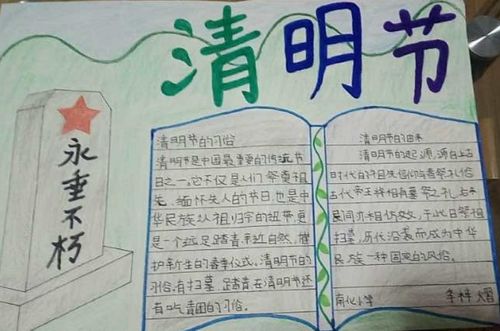 清明节
永垂不朽
清明节的习俗
清明节是中国最重要的传统节
日之一。它不仅是人们祭奠祖
先、缅怀先人的节日,也是中
华民族认祖归宗的纽带,更
是一个远足踏青、亲近自然、催
护新生的春季仪式。清明节的
习俗有扫墓、踏青,在清明节还
有吃青团的习俗。
清明节的由来
清明节的起源,源自上古
时代的祖先信仰与春祭礼俗
古代帝王将相有墓祭之礼,后来
民间亦相仿效,于此日祭祖
扫墓,历代沿袭而成为中华
民族一种固定的风俗。
小学